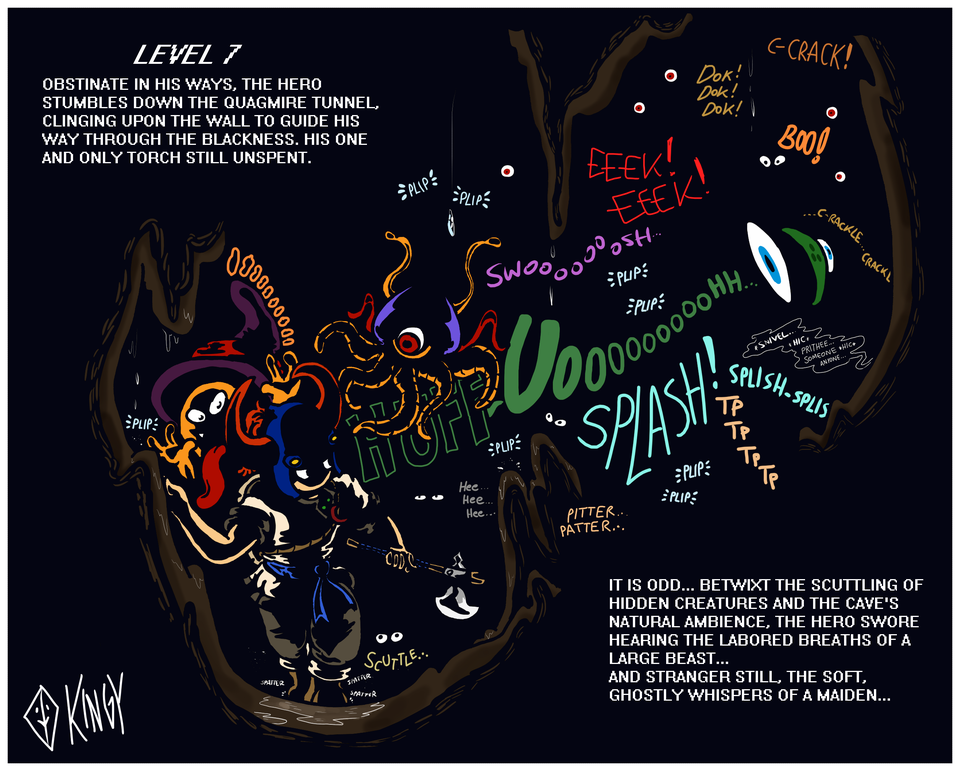 LEVEL 7
OBSTINATE IN HIS WAYS, THE HERO
STUMBLES DOWN THE QUAGMIRE TUNNEL,
CLINGING UPON THE WALL TO GUIDE HIS
WAY THROUGH THE BLACKNESS. HIS ONE
AND ONLY TORCH STILL UNSPENT.
C-CRACK!
DOK!
DOK!
DOK!
BOO!
EEEK!
EEEK!
PLIP
PLIP
SWOOOOOOOSH...
...C-RACKLE...CRACKL
PLIP
PLIP
OOOOOOOOOO
HUFF-UOOOOOOOOOOHH...
HIC
PRITHEE...
SOMEONE HIC
ANYONE...
SPLASH!
SPLISH-SPLIS
TP
TP
TP
TP
PLIP
PLIP
PLIP
PLIP
HEE...
HEE...
HEE...
PITTER...
PATTER...
SCUTTLE...
SPATTER
SPATTER
SPATTER
IT IS ODD... BETWIXT THE SCUTTLING OF
HIDDEN CREATURES AND THE CAVE'S
NATURAL AMBIENCE, THE HERO SWORE
HEARING THE LABORED BREATHS OF A
LARGE BEAST...
AND STRANGER STILL, THE SOFT,
GHOSTLY WHISPERS OF A MAIDEN...
KINGY